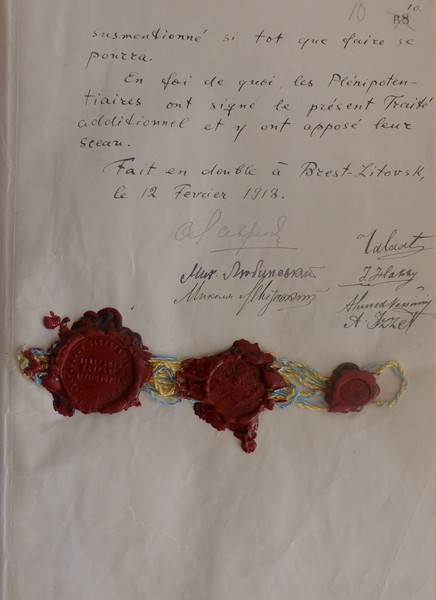 10
susmentionné si tot que faire se
pourra.
En foi de quoi, les Plénipoten-
tiaires ont signé le présent Traité
additionnel et y ont apposé leur
sceau.
Fait en double à Brest-Litovsk,
le 12 Fevrier 1918.
Мих. Любинський
Talaat
J. Hakky
Микола
Ahmed Nessimy
A. Izzet